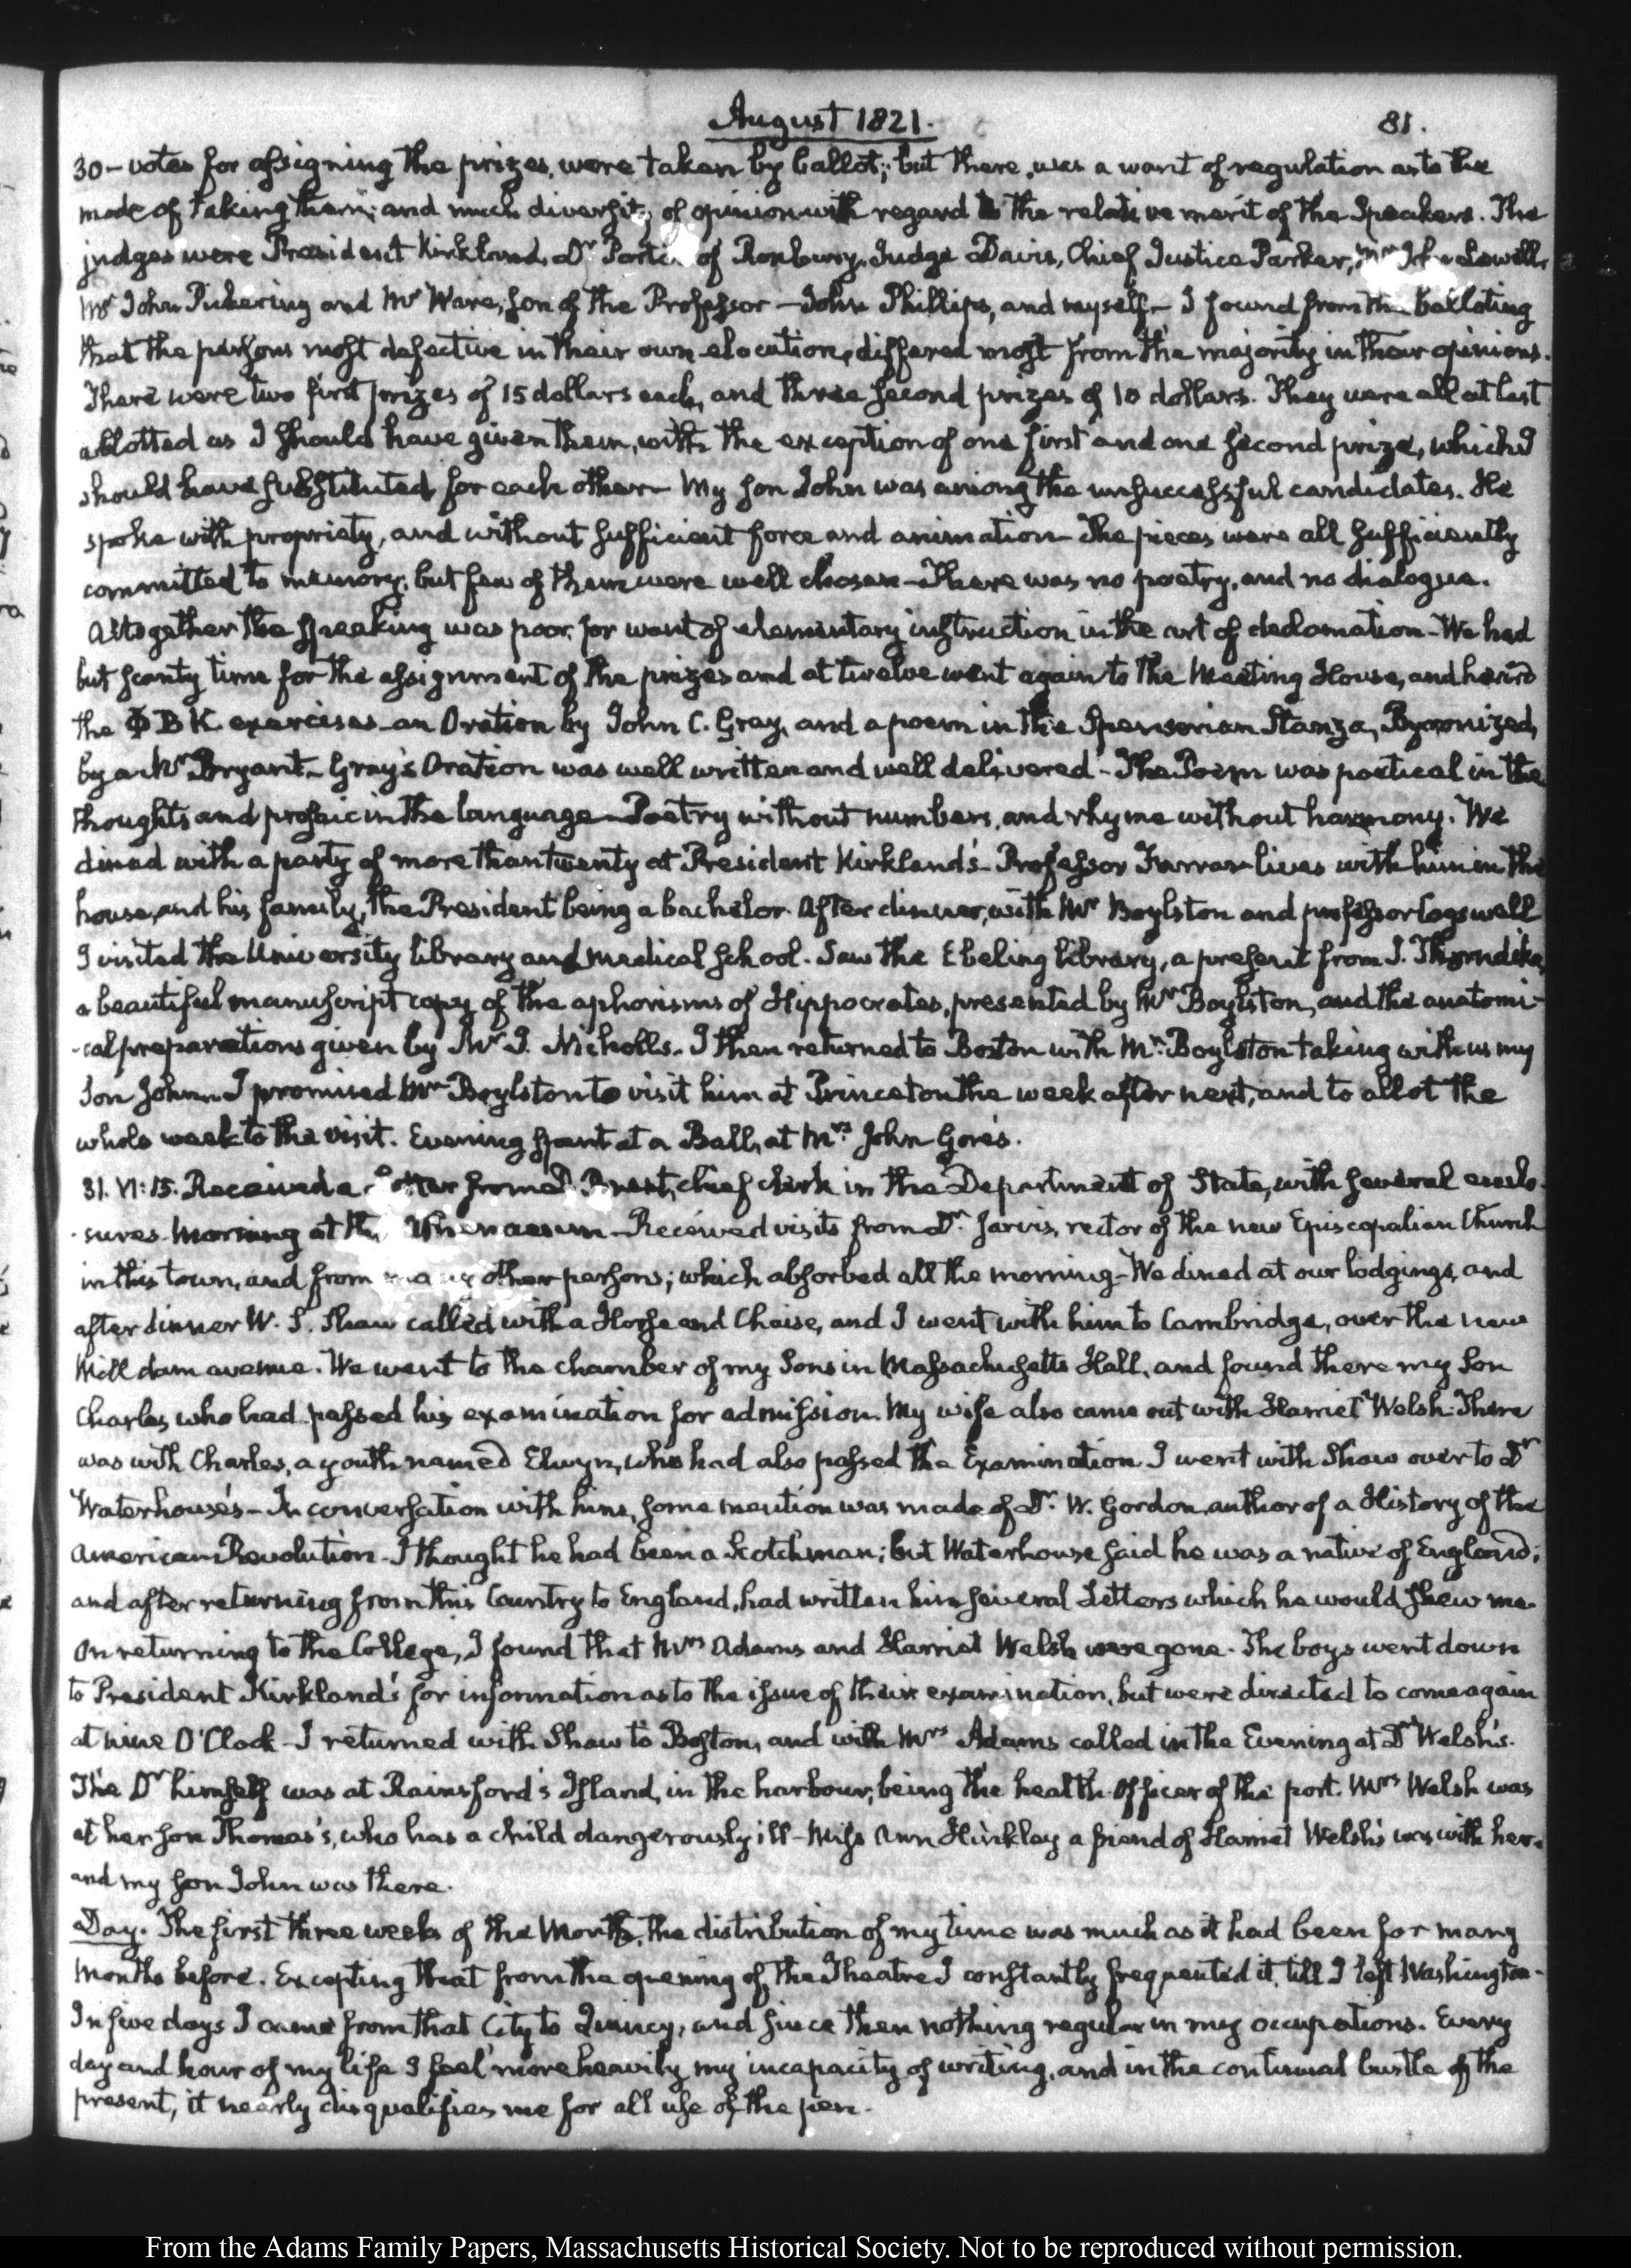 August 1821.
81.
30 - votes for assigning the prizes, were taken by ballot; but there was a want of regulation as to the
mode of taking them; and much diversity of opinion with regard to the relative merit of the Speakers. The
judges were President Kirkland, Dr Porter of Roxbury, Judge Davis, Chief Justice Parker, Mr John Lowell,
Mr John Pickering and Mr Ware, son of the Professor — John Phillips, and myself — I found from the balloting
that the persons most defective in their own elocution, differed most from the majority in their opinions.
There were two first prizes of 15 dollars each, and three second prizes of 10 dollars. They were all at last
allotted as I should have given them, with the exception of one first and one second prize, which I
should have substituted for each other — My son John was among the unsuccessful candidates. He
spoke with propriety, and without sufficient force and animation — The pieces were all sufficiently
committed to memory; but few of them were well chosen — There was no poetry, and no dialogue.
Altogether the speaking was poor, for want of elementary instruction in the art of declamation — We had
but scanty time for the assignment of the prizes and at twelve went again to the Meeting House, and heard
the Φ B K exercises — an Oration by John C. Gray, and a poem in the Spenserian Stanza, Byronized,
by a Mr Bryant — Gray's Oration was well written and well delivered — The Poem was poetical in the
thoughts and prosaic in the language — Poetry without numbers, and rhyme without harmony. We
dined with a party of more than twenty at President Kirkland's — Professor Farrar lives with him in the
house, and his family, the President being a bachelor. After dinner, with Mr Boylston and professor Cogswell
I visited the University library and medical school. Saw the Ebeling library, a present from I. Thorndike,
a beautiful manuscript copy of the aphorisms of Hippocrates, presented by Mr Boylston, and the anatomi-
-cal preparations given by Mr I. Nicholls. I then returned to Boston with Mr Boylston taking with us my
Son John — I promised Mr Boylston to visit him at Princeton the week after next, and to allot the
whole week to the visit. Evening spent at a Ball, at Mrs John Gore's.
31. VI: 15. Received a Letter from D. Brent, chief clerk in the Department of State, with several enclo-
-sures. Morning at the Athenaeum — Received visits from Dr Jarvis, rector of the new Episcopalian Church
in this town, and from many other persons; which absorbed all the morning — We dined at our lodgings, and
after dinner W. S. Shaw called with a Horse and Chaise, and I went with him to Cambridge, over the new
Mill dam avenue. We went to the chamber of my Sons in Massachusetts Hall, and found there my Son
Charles, who had passed his examination for admission. My wife also came out with Harriet Welsh. There
was with Charles, a youth named Elwyn, who had also passed the Examination. I went with Shaw over to Dr
Waterhouse's — In conversation with him, some mention was made of Dr W. Gordon, author of a History of the
American Revolution — I thought he had been a Scotchman; but Waterhouse said he was a native of England;
and after returning from this Country to England, had written him several Letters which he would shew me.
On returning to the College, I found that Mrs Adams and Harriet Welsh were gone. The boys went down
to President Kirkland's for information as to the issue of their examination, but were directed to come again
at nine O'Clock — I returned with Shaw to Boston, and with Mrs Adams called in the Evening at Dr Welsh's.
The Dr himself was at Rainsford's Island, in the harbour, being the health Officer of the port. Mrs Welsh was
at her son Thomas's, who has a child dangerously ill — Miss Ann Hinkley a friend of Harriet Welsh's was with her.
and my son John was there.
Day. The first three weeks of the Month, the distribution of my time was much as it had been for many
Months before. Excepting that from the opening of the Theatre I constantly frequented it, till I left Washington.
In five days I came from that City to Quincy, and since then nothing regular in my occupations. Every
day and hour of my life I feel more heavily my incapacity of writing, and in the continual bustle of the
present, it nearly disqualifies me for all use of the pen.
From the Adams Family Papers, Massachusetts Historical Society. Not to be reproduced without permission.